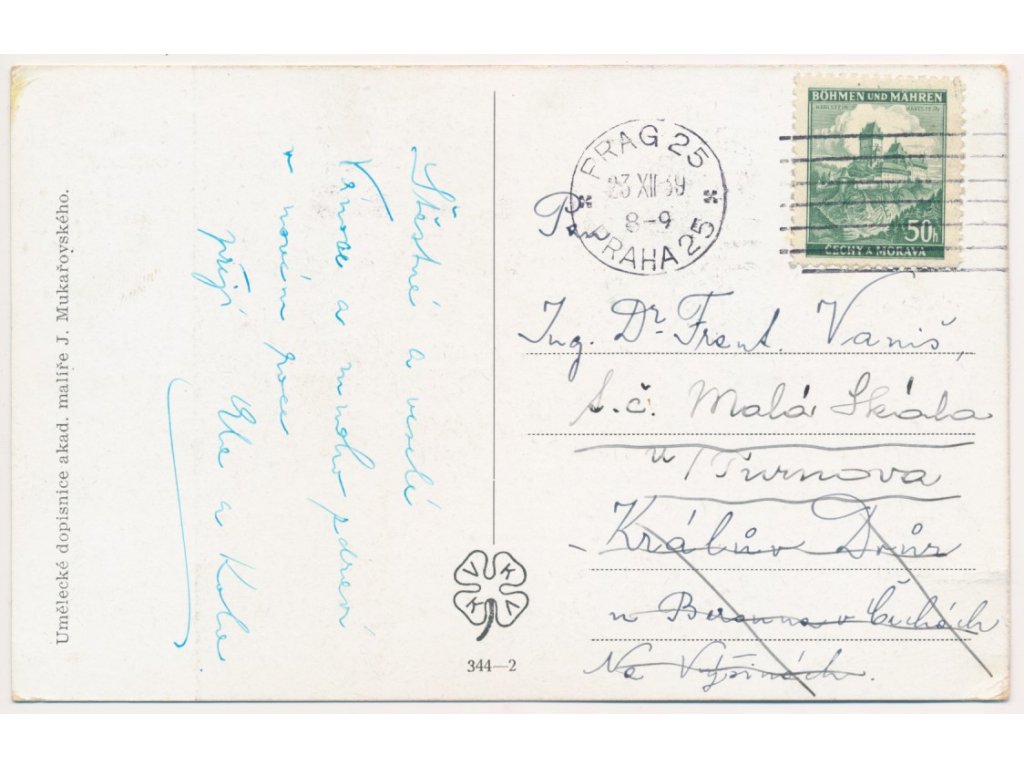 Umělecké dopisnice akad. malíře J. Mukařovského.
Šťěstné a veselé
Vánoce a mnoho zdraví
v novém roce
přejí
PRAG 25
23 XII 39
8–9
PRAHA 25
BÖHMEN UND MÄHREN
KARLSTEIN KARLŠTEJN
50h
ČECHY A MORAVA
Pan
Ing. Dr. Frant. Vaniš,
s. č. Malá Skála
u Turnova
Králův Dvůr
u Berouna v Čechách
Na Vyšinách.
V K
K V
344—2